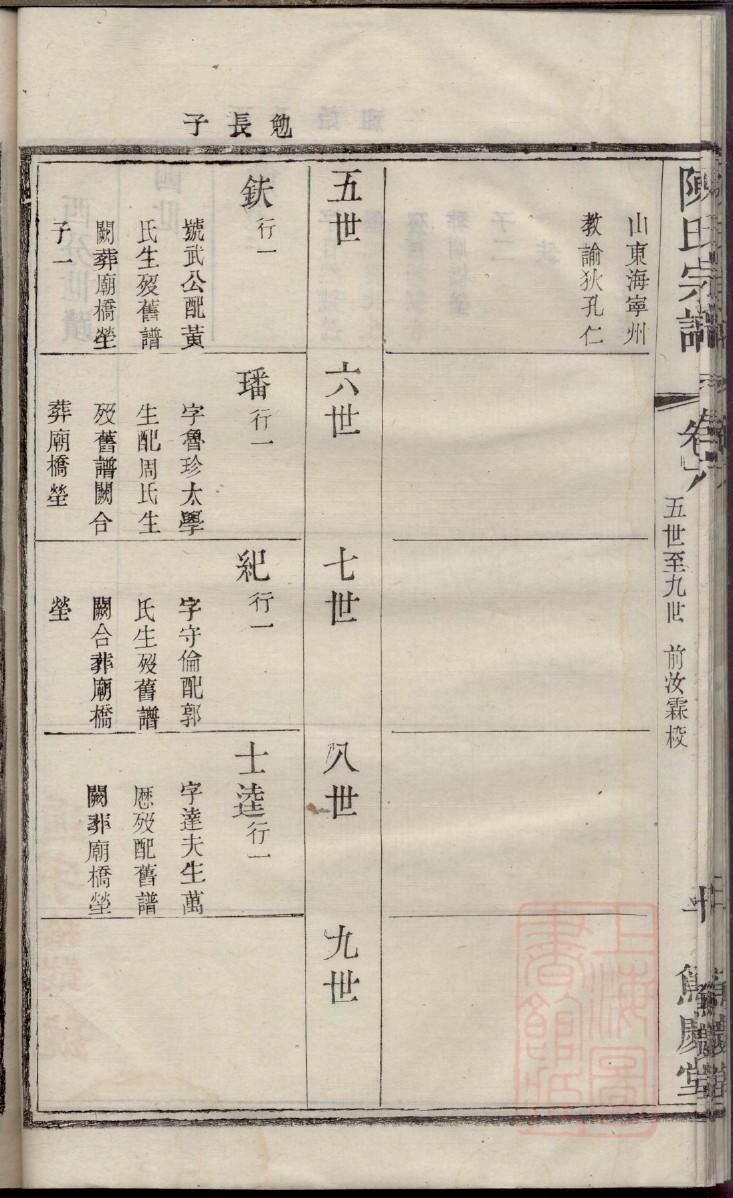 陳氏宗譜
卷六
五世至九世 前汝霖校
山東海寧州
教諭狄孔仁
五世
六世
七世
八世
九世
勉長子
鈇行一
號武公配黃
氏生歿舊譜
闕葬廟橋塋
子一
璠行一
字魯珍太學
生配周氏生
歿舊譜闕合
葬廟橋塋
紀行一
字守倫配郭
氏生歿舊譜
闕合葬廟橋
塋
士逵行一
字達夫生萬
厯歿配舊譜
闕葬廟橋塋
上海圖
書館藏